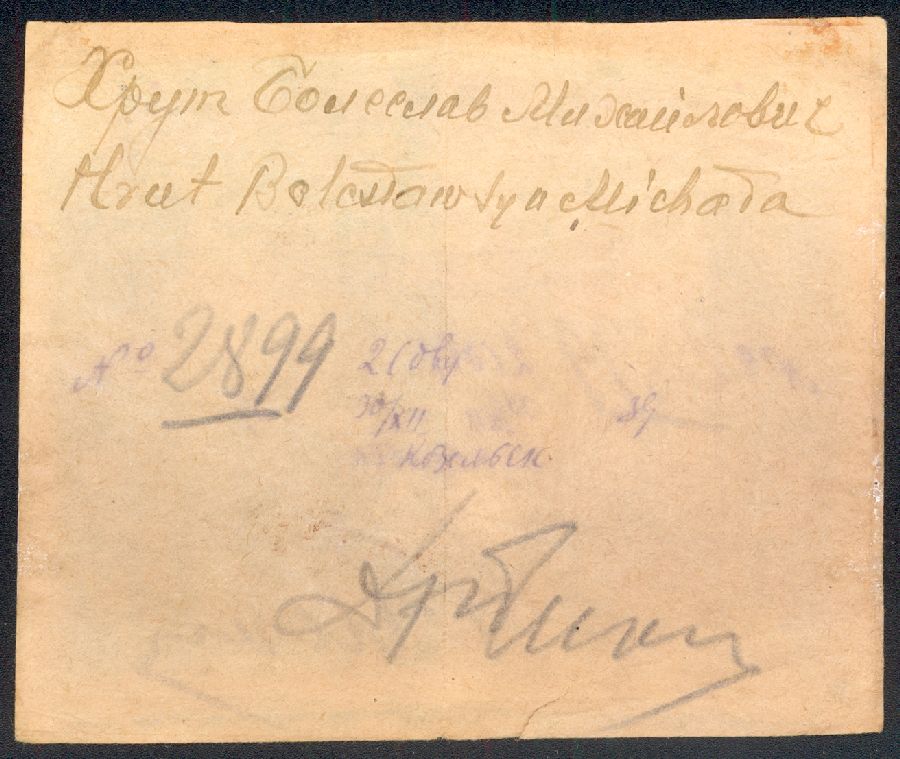 Хрут Болеслав Михайлович
Hrut Bolesław syn Michała
№ 2899
30/XII 39
Козельск